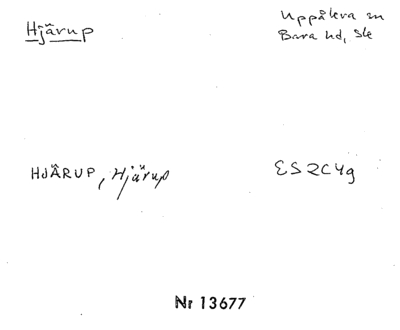 Hjärup
Uppåkra sn
Bara hd, Ske
HJÄRUP, Hjärup
ES 2C4g
Nr 13677